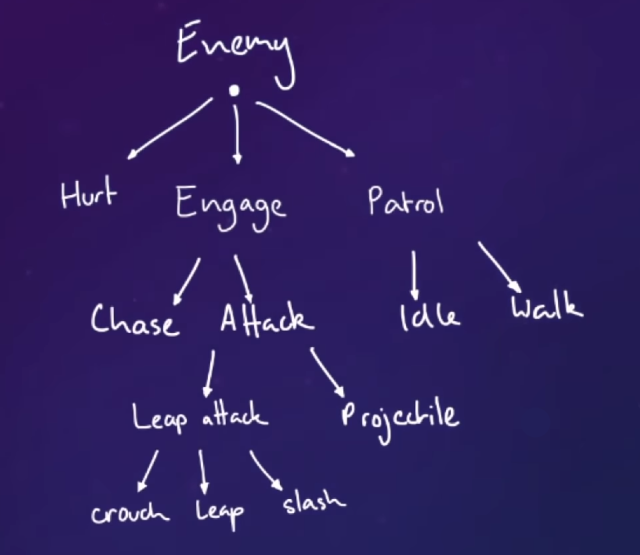 Enemy
Hurt Engage Patrol
Chase Attack Idle Walk
Leap attack Projectile
crouch Leap slash